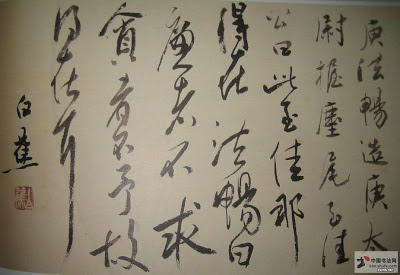 庾法暢造庾太
尉握麈尾至佳
公曰此至佳那
得在法暢曰
廉者不求
貪者不予故
得在耳
白蕉
中国书法网